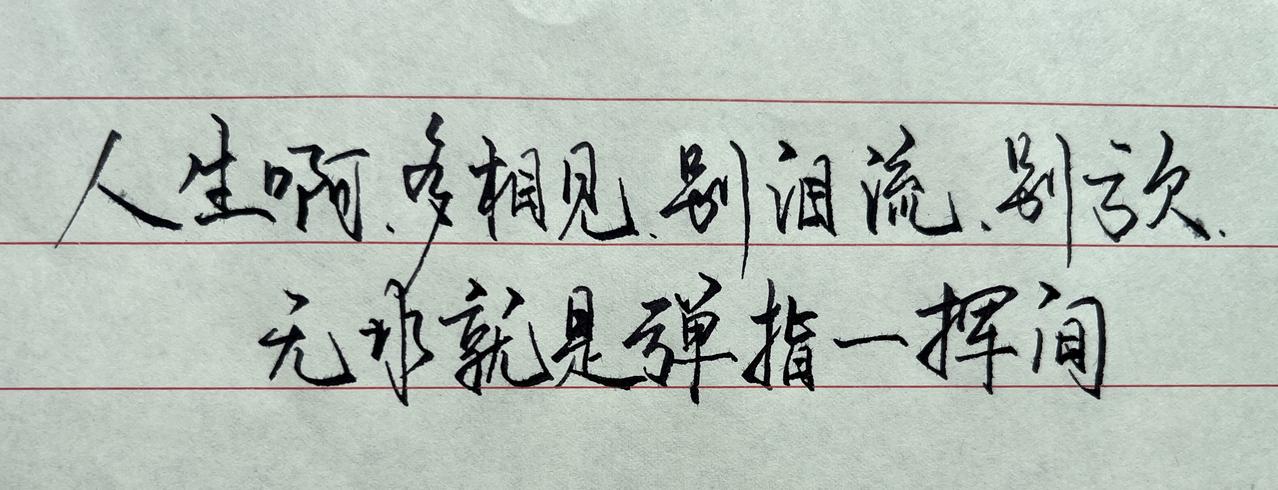 人生啊.多相见.别泪流.别欤.
无非就是弹指一挥间